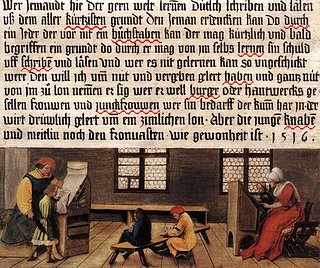 Wer Jemandt hie der gern welt lernen Dütsch schriben und läsen
uß dem aller kürtzisten grundt den Jeman erdencken kan Do durch
ein Jeder der vor nit ein büchstaben kan der mag kürtzlich und bald
begriffen ein grundt do durch er mag von jm selbs lernen sin schuld
uff schribē und läsen und wer es nit gelernen kan so ungeschickt
den will ich um̄ nüt und vergeben glert haben und gantz nüt
von jm zü lon nemen er sig wer er well burger oder hantwercks ge
sellen frouwen und junckfrouwen wer sin bedarff der kum har jn der
wirt drüwlich glert um̄ ein zimlichen lon. Aber die junge knabē
und meitlin noch den fronuasten wie gewonheit ist. 1516.